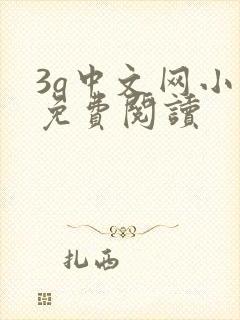 3g中文网小
免費閱讀
扎西